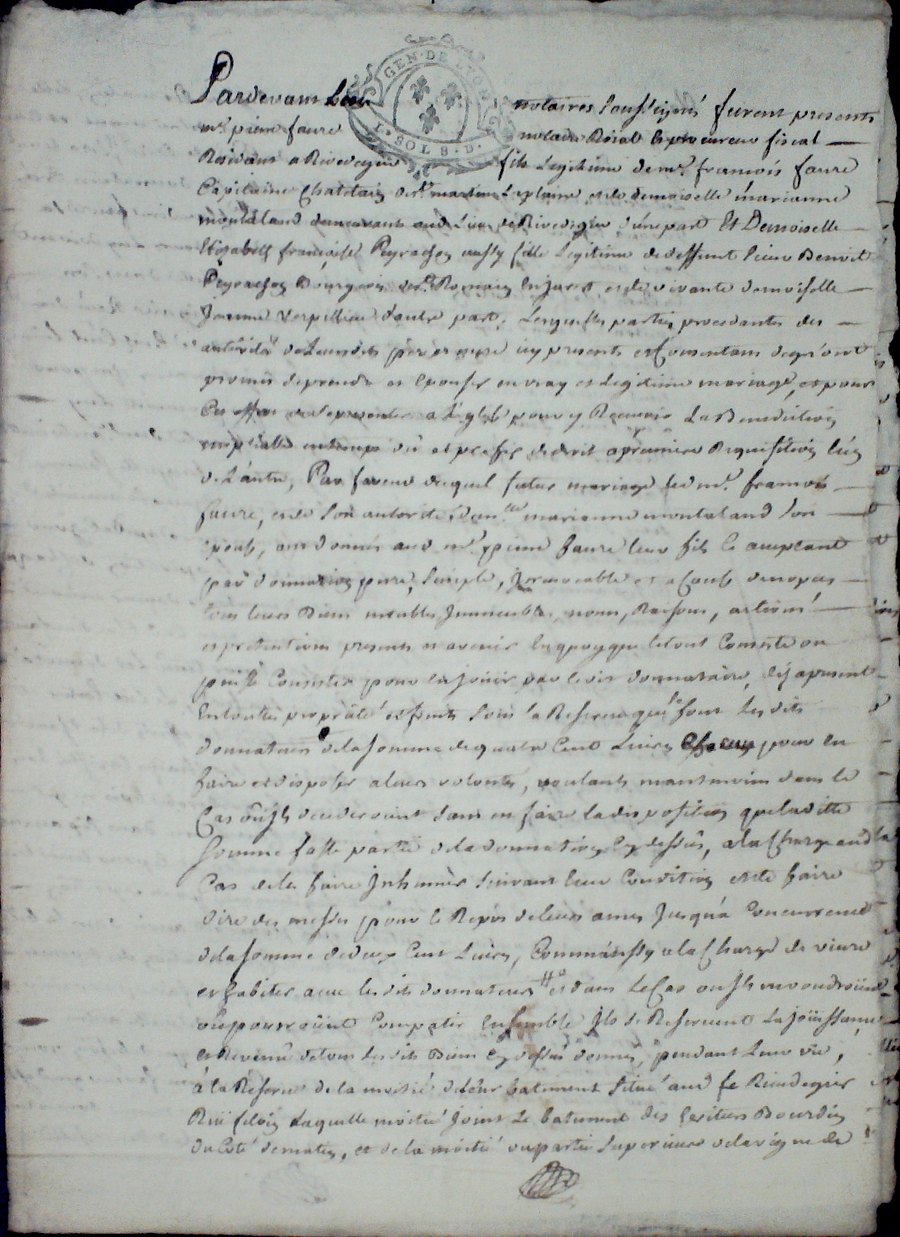 GEN · DE LYON
SOLS · D ·
Pardevant Les notaires soussignés furent presents
mr. pierre faure notaire Roial & procureur fiscal
Residant a Rivedegier fils Legitime de mr. francois faure
Capitaine Chatelain de st. martin la plaine et de demoiselle marianne
montaland demeurants aud Lieu de Rivedegier d'une part Et Demoiselle
Elizabeth françoise Peyrachon aussy fille Legitime de deffunt sieur Benoit
Peyrachon Bourgeois de st. Romain en Jarest et de vivante demoiselle
Jeanne Verpilliere d'autre part, Lesquelles parties procedantes des
autorités de Leursdits pere et mere icy presents et Consentans de gré ont
promis se prendre et Epouser en vray et Legitime mariage, et pour
Cet effet se representer a L'eglise pour y Recevoir La Benediction
nuptialle en temps dû et prefix de droit a premiere Requisition L'un
de L'autre, Par faveur duquel futur mariage led mr. francois
faure, et de son autorité dem.lle marianne montaland son
epouse, ont donnés aud mr. pierre faure leur fils ce acceptant
par donnation pure, simple, Irrevocable et a Cause de nopces
tous leurs Biens meubles, Immeubles, noms, Raisons, actions
et pretentions presents et avenir en quoy que le tout Consiste ou
puisse Consister pour en Jouir par le dit donnataire, dés apresent
en toutte proprieté et fruits sous la Reserve que font les dits
donnateurs de la somme de quatre Cent Livres pour en
faire et disposer a leurs volontés, voulants neantmoins dans le
Cas où ils decederoient sans en faire la disposition que laditte
somme fasse partie de la donnation cy dessus, a la Charge aud
Cas de les faire Inhumer suivant leur Condition et de faire
dire des messes pour le Repos de leurs ames Jusqu'a Concurrence
de la somme de deux Cent Livres, Comm'aussy a la Charge de vivre
et habiter avec les dits donnateurs et dans Le Cas ou ils ne voudroient
ou pourroient Compatir Ensemble Ils se Reservent La Jouissance
et Revenû de tous les dits Biens cy dessus donnés pendant Leur vie,
à la Reserve de la moitié de Leur batiment situé aud Rivedegier
Ruë laquelle moitié Joint Le batiment des heritiers Bourdin
du Coté de matin, et de la moitié ou partie superieure de la vigne de